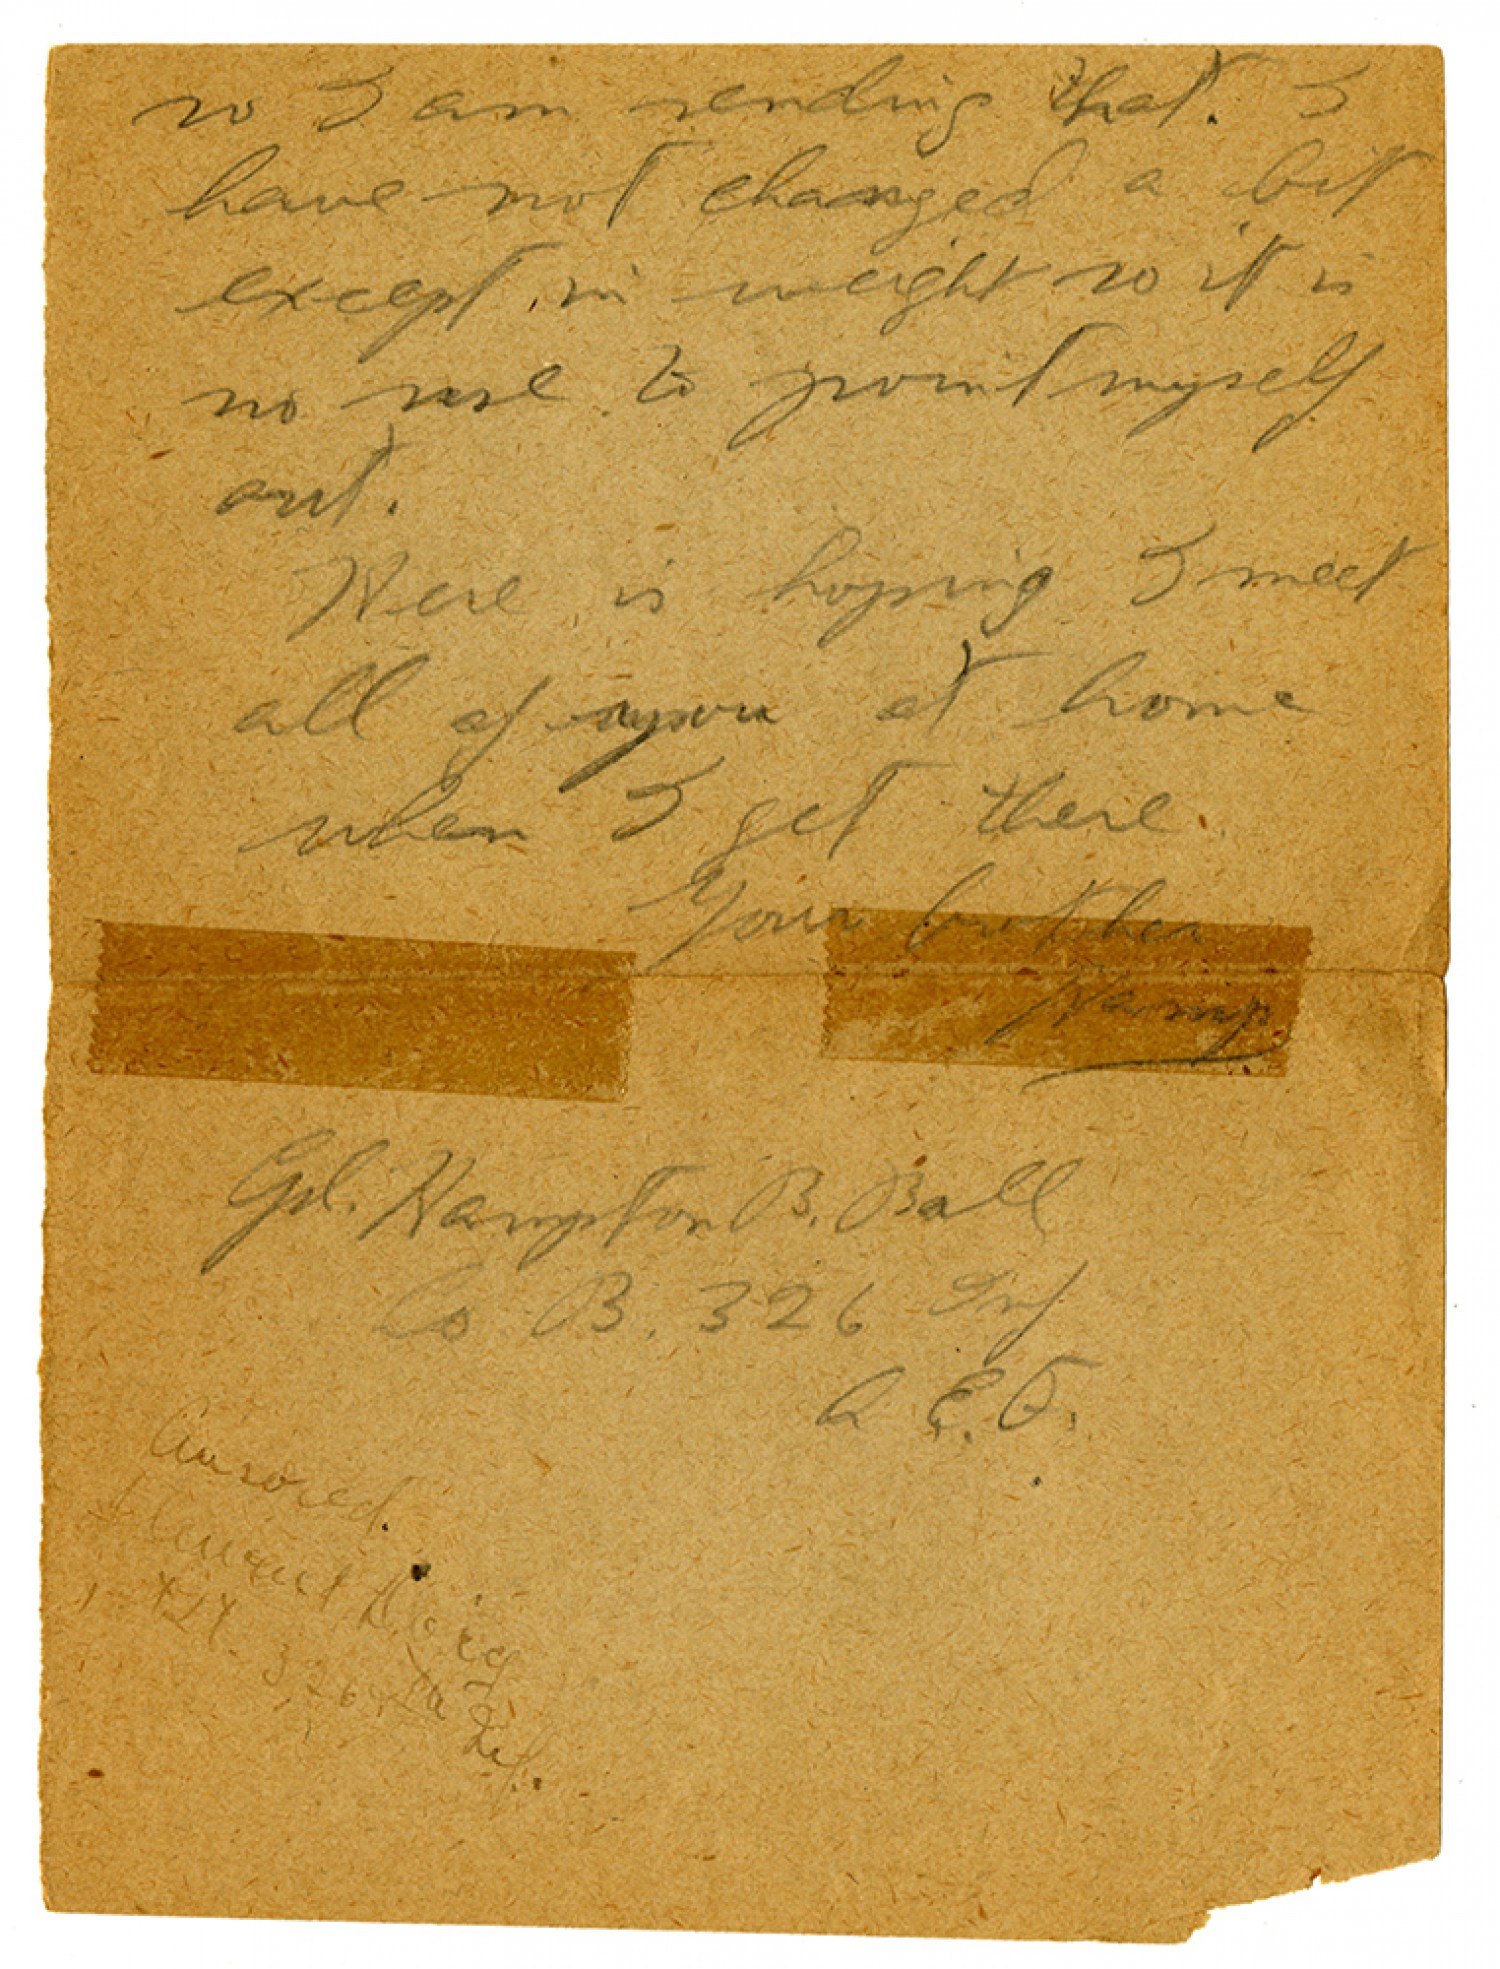 so I am sending that. I
have not changed a bit
except in weight so it is
no use to point myself
out.
Here is hoping I meet
all of you at home
when I get there.
Your brother
Hamp
Cpl. Hampton B. Ball
Co B. 326 Inf
A. E. F.
Censored.
326 Inf.